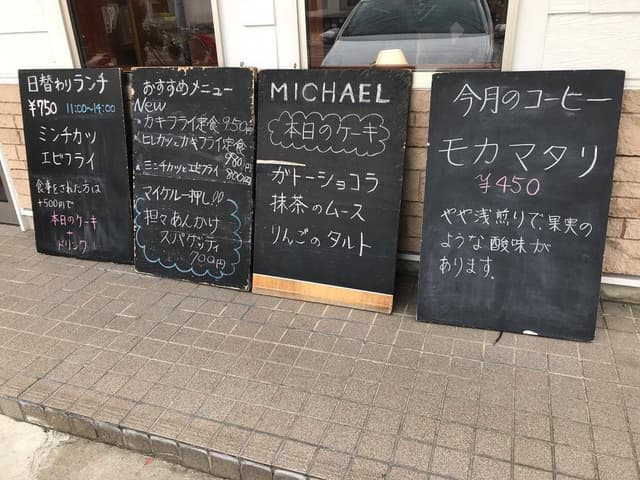 日替わりランチ
¥750 11:00~14:00
ミンチカツ
エビフライ
食事をされた方は
+500円で
本日のケーキ
+
ドリンク
おすすめメニュー
New
カキフライ定食 950円
ヒレカツとカキフライ定食
980円
ミンチカツとエビフライ 800円
マイケル一押し!!
担々あんかけ
スパゲッティ
700円
MICHAEL
本日のケーキ
ガトーショコラ
抹茶のムース
りんごのタルト
今月のコーヒー
モカマタリ
¥450
やや浅煎りで、果実の
ような酸味が
あります.